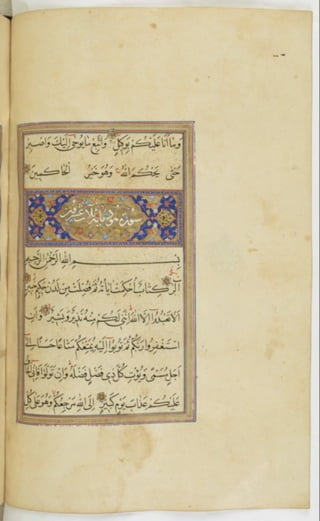 وما انا عليكم بوكيل واتبع ما يوحى اليك واصبر
حتى يحكم الله وهو خير الحاكمين
سورة هود مائة
بسم الله الرحمن الرحيم
الر كتاب احكمت اياته ثم فصلت من لدن حكيم خبير
الا تعبدوا الا الله اننى لكم منه نذير وبشير وان
استغفروا ربكم ثم توبوا اليه يمتعكم متاعا حسنا الى
اجل مسمى ويؤت كل ذى فضل فضله وان تولوا فانى اخاف
عليكم عذاب يوم كبير الى الله مرجعكم وهو على كل